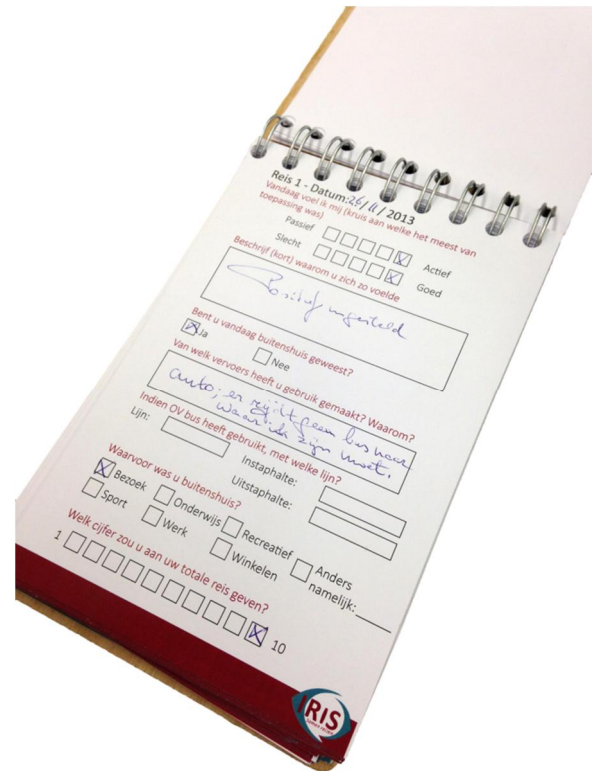 Reis 1 - Datum: 26/11/2013
Vandaag voel ik mij (kruis aan welke het meest van
toepassing was)
Passief Actief
Slecht Goed
Beschrijf (kort) waarom u zich zo voelde
Positief ingesteld
Bent u vandaag buitenshuis geweest?
Ja Nee
Van welk vervoers heeft u gebruik gemaakt? Waarom?
auto; er rijdt geen bus naar
waar ik zijn moet.
Indien OV bus heeft gebruikt, met welke lijn?
Lijn: Instaphalte:
Uitstaphalte:
Waarvoor was u buitenshuis?
Bezoek Onderwijs Recreatief Anders
Sport Werk Winkelen namelijk:
Welk cijfer zou u aan uw totale reis geven?
1 10
IRIS